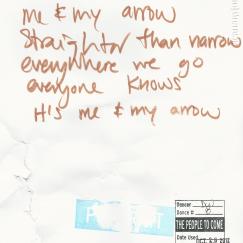 me & my arrow
Straighter than narrow
everywhere we go
everyone knows
It's me & my arrow
Dancer
Dance # 8
THE PEOPLE TO COME
Date Used OCT 29 2012